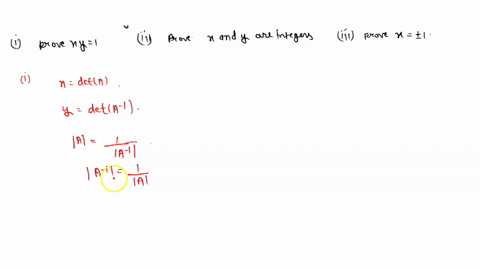 (i) prove xy=1 (ii) Prove x and y are integers (iii) prove x = ±1.
(i) x = det(A).
y = det(A-1).
|A| = 1/|A-1|
|A-1| = 1/|A|